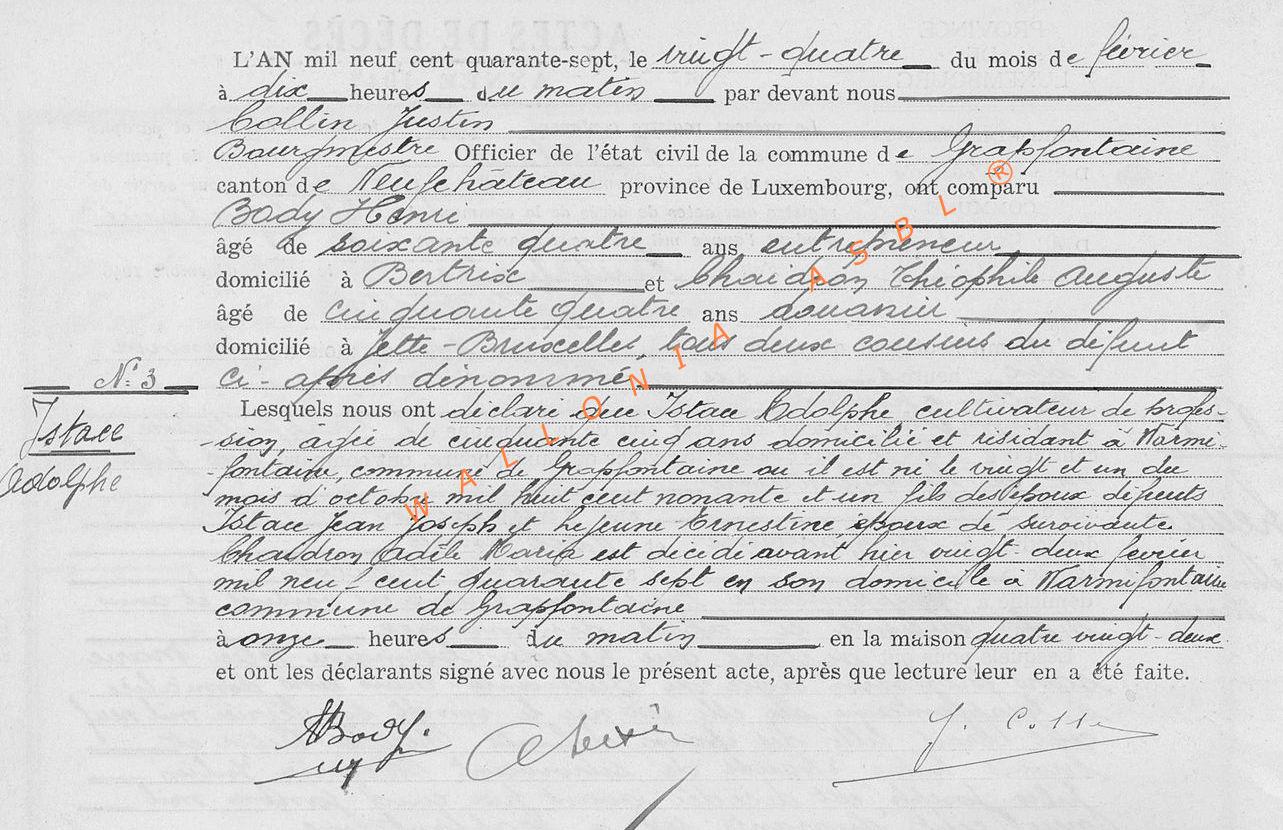 L'AN mil neuf cent quarante-sept, le vingt-quatre du mois de février
à dix heures du matin par devant nous
Collin Justin
Bourgmestre Officier de l'état civil de la commune de Grapfontaine
canton de Neufchâteau province de Luxembourg, ont comparu
Body Henri
âgé de soixante quatre ans entrepreneur
domicilié à Bertrix et Chaidron Théophile Auguste
âgé de cinquante quatre ans douanier
domicilié à Jette-Bruxelles, tous deux cousins du défunt
N° 3 ci-après dénommé
Lesquels nous ont déclaré que Istace Adolphe cultivateur de profes-
Istace
-sion, âgée de cinquante cinq ans domicilié et résidant à Warmi-
Adolphe
-fontaine, commune de Grapfontaine ou il est né le vingt et un du
mois d'octobre mil huit cent nonante et un fils des époux défunts
Istace Jean Joseph et Lejeune Ernestine, époux de survivante
Chaudron Adèle Maria est décédé avant hier vingt-deux février
mil neuf cent quarante sept en son domicile à Warmifontaine
commune de Grapfontaine
à onze heures du matin en la maison quatre vingt-deux
et ont les déclarants signé avec nous le présent acte, après que lecture leur en a été faite.
HBody.
WALLONIA ASBL ®